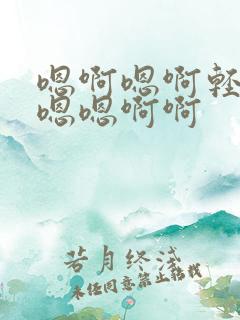 嗯啊嗯啊轻
嗯嗯啊啊
若月终浅
未经同意禁止转载